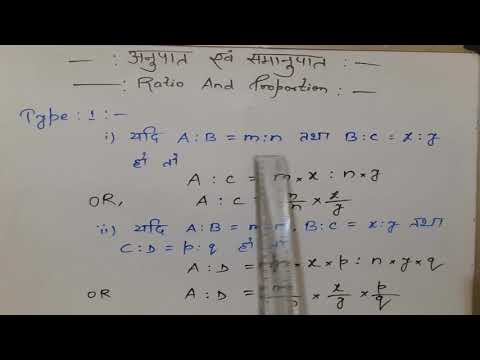 — : अनुपात एवं समानुपात : —
— : Ratio And Proportion : —
Type : 1 : –
i) यदि A : B = m : n तथा B : C = x : y
हो तो
A : C = m × x : n × y
OR, A : C = m/n × x/y
ii) यदि A : B = m : n, B : C = x : y तथा
C : D = p : q हो तो
A : D = × x × p : n × y × q
OR A : D = × x/y × p/q